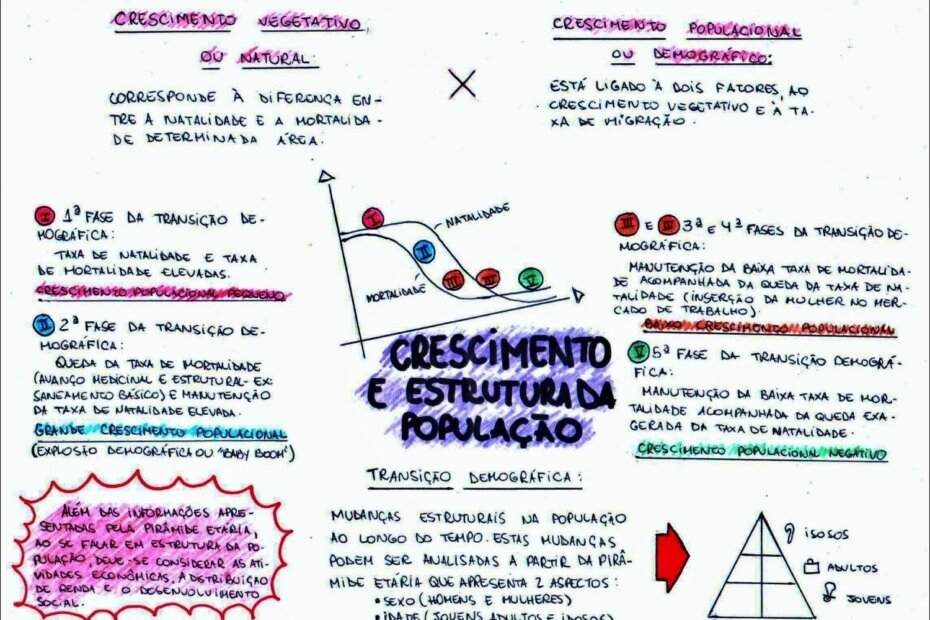 CRESCIMENTO VEGETATIVO
OU NATURAL:
CORRESPONDE À DIFERENÇA EN-
TRE A NATALIDADE E A MORTALIDA-
DE DETERMINADA ÁREA.
X
CRESCIMENTO POPULACIONAL
OU DEMOGRÁFICO:
ESTÁ LIGADO À DOIS FATORES, AO
CRESCIMENTO VEGETATIVO E À TA-
XA DE MIGRAÇÃO.
I 1ª FASE DA TRANSIÇÃO DE-
MOGRÁFICA:
TAXA DE NATALIDADE E TAXA
DE MORTALIDADE ELEVADAS.
CRESCIMENTO POPULACIONAL PEQUENO
II 2ª FASE DA TRANSIÇÃO DE-
MOGRÁFICA:
QUEDA DA TAXA DE MORTALIDADE
(AVANÇO MEDICINAL E ESTRUTURAL-EX:
SANEAMENTO BÁSICO) E MANUTENÇÃO
DA TAXA DE NATALIDADE ELEVADA.
GRANDE CRESCIMENTO POPULACIONAL
(EXPLOSÃO DEMOGRÁFICA OU "BABY BOOM")
I
NATALIDADE
II
III
III
V
MORTALIDADE
CRESCIMENTO
E ESTRUTURA DA
POPULAÇÃO
III E III 3ª E 4ª FASES DA TRANSIÇÃO DE-
MOGRÁFICA:
MANUTENÇÃO DA BAIXA TAXA DE MORTALIDA-
DE ACOMPANHADA DA QUEDA DA TAXA DE NA-
TALIDADE (INSERÇÃO DA MULHER NO MER-
CADO DE TRABALHO).
BAIXO CRESCIMENTO POPULACIONAL
V 5ª FASE DA TRANSIÇÃO DEMOGRÁ-
FICA:
MANUTENÇÃO DA BAIXA TAXA DE MOR-
TALIDADE ACOMPANHADA DA QUEDA EXA-
GERADA DA TAXA DE NATALIDADE.
CRESCIMENTO POPULACIONAL NEGATIVO
ALÉM DAS INFORMAÇÕES APRE-
SENTADAS PELA PIRÂMIDE ETÁRIA,
AO SE FALAR EM ESTRUTURA DA PO-
PULAÇÃO, DEVE-SE CONSIDERAR AS ATI-
VIDADES ECONÔMICAS, A DISTRIBUIÇÃO
DE RENDA E O DESENVOLVIMENTO
SOCIAL.
TRANSIÇÃO DEMOGRÁFICA:
MUDANÇAS ESTRUTURAIS NA POPULAÇÃO
AO LONGO DO TEMPO. ESTAS MUDANÇAS
PODEM SER ANALISADAS A PARTIR DA PIRÂ-
MIDE ETÁRIA QUE APRESENTA 2 ASPECTOS:
• SEXO (HOMENS E MULHERES)
• IDADE (JOVENS ADULTOS E IDOSOS)
IDOSOS
ADULTOS
JOVENS